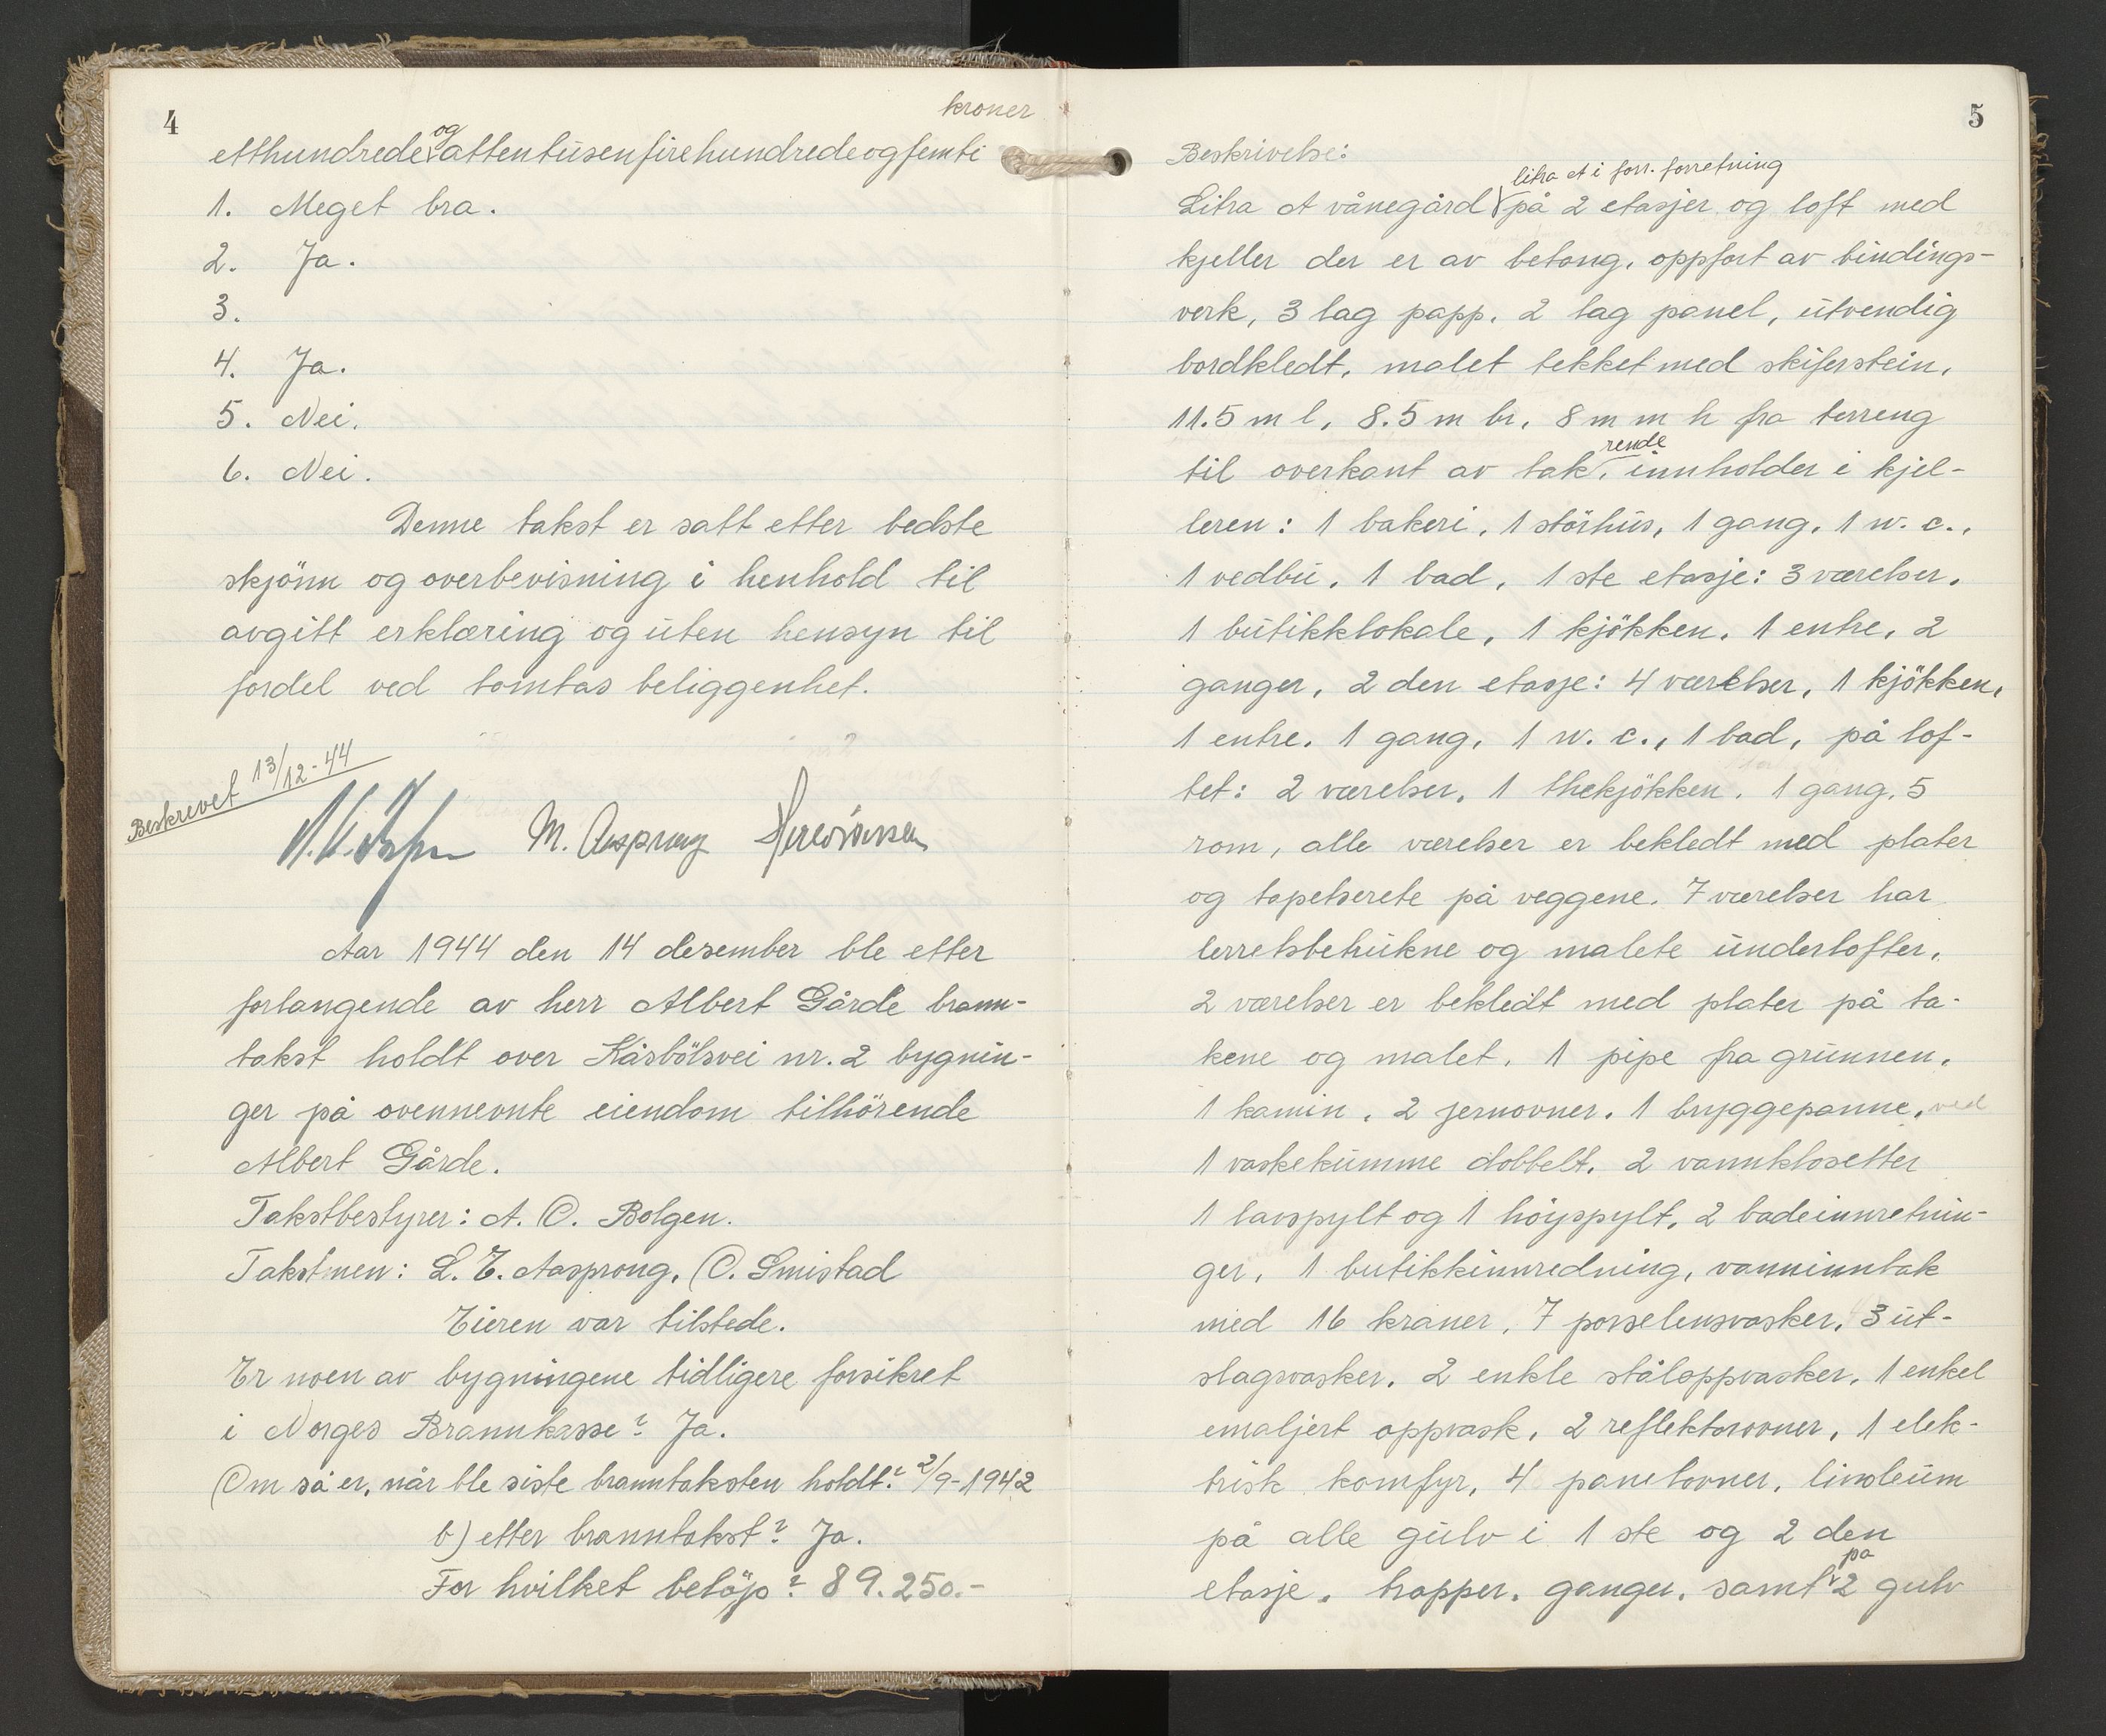 4
kroner
og
etthundredeattentusenfirehundredeogfemti
1. Meget bra.
2. Ja.
3.
4. Ja.
5. Nei.
6. Nei.
Denne takst er satt etter bedste
skjönn og overbevisning i henhold til
avgitt erklæring og uten hensyn til
fordel ved tomtas beliggenhet.
Beskrevet 13/12-44
M. Aasprong
Aar 1944 den 14 desember ble etter
forlangende av herr Albert Gårde brann-
takst holdt over Kåsbölsvei nr. 2 bygnin-
ger på ovennevnte eiendom tilhörende
Albert Gårde.
Takstbestyrer: A. O. Bolgen.
Takstmen: L. E. Aasprong, O. Smistad
Eieren var tilstede.
Er noen av bygningene tidligere forsikret
i Norges Brannkasse? Ja.
Om så er, når ble siste branntaksten holdt? 2/9-1942
b) etter branntakst? Ja.
For hvilket belöp? 89.250.-
5
Beskrivelse:
litra A i forr. forretning
Litra A vånegård på 2 etasjer og loft med
kjeller der er av betong, oppfort av bindings-
verk, 3 lag papp, 2 lag panel, utvendig
bordkledt, malet tekket med skiferstein,
11.5 m l, 8.5 m br, 8 m m h fra terreng
rende
til overkant av tak, innholder i kjel-
leren: 1 bakeri, 1 störhus, 1 gang, 1 w.c.,
1 vedbu, 1 bad, 1 ste etasje: 3 værelser,
1 butikklokale, 1 kjökken, 1 entre, 2
ganger, 2 den etasje: 4 værelser, 1 kjökken,
1 entre, 1 gang, 1 w.c., 1 bad, på lof-
tet: 2 værelser, 1 thekjökken, 1 gang, 5
rom, alle værelser er bekledt med plater
og tapetserete på veggene. 7 værelser har
lerretsbetrukne og malete underlofter,
2 værelser er bekledt med plater på ta-
kene og malet, 1 pipe fra grunnen,
1 kamin, 2 jernovner, 1 bryggepanne, ved
1 vaskekumme dobbelt, 2 vannklosetter
1 lavspylt og 1 höyspylt, 2 badeinnretnin-
ger, 1 butikkinnredning, vanninntak
med 16 kraner, 7 porselensvasker, 3 ut-
slagsvasker, 2 enkle ståloppvasker, 1 enkel
emaljert oppvask, 2 reflektorovner, 1 elek-
trisk komfyr, 4 panelovner, linoleum
på alle gulv i 1 ste og 2 den
på
etasje, trapper, ganger, samt 2 gulv